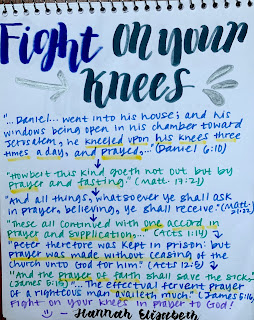 Fight on your
Knees
"...Daniel... went into his house; and his
windows being open in his chamber toward
Jerusalem, he kneeled upon his knees three
times a day, and prayed,..." (Daniel 6:10)
"Howbeit this kind goeth not out but by
prayer and fasting." (Matt. 17:21)
"And all things, whatsoever ye shall ask
in prayer, believing, ye shall receive." (Matt. 21:22)
"These all continued with one accord in
prayer and supplication,..." (Acts 1:14)
"Peter therefore was kept in prison: but
prayer was made without ceasing of the
church unto God for him." (Acts 12:5)
"And the prayer of faith shall save the sick,"
(James 5:15) "...The effectual fervent prayer
of a righteous man availeth much." (James 5:16)
Fight on your knees in prayer to God!
:) - Hannah Elisabeth